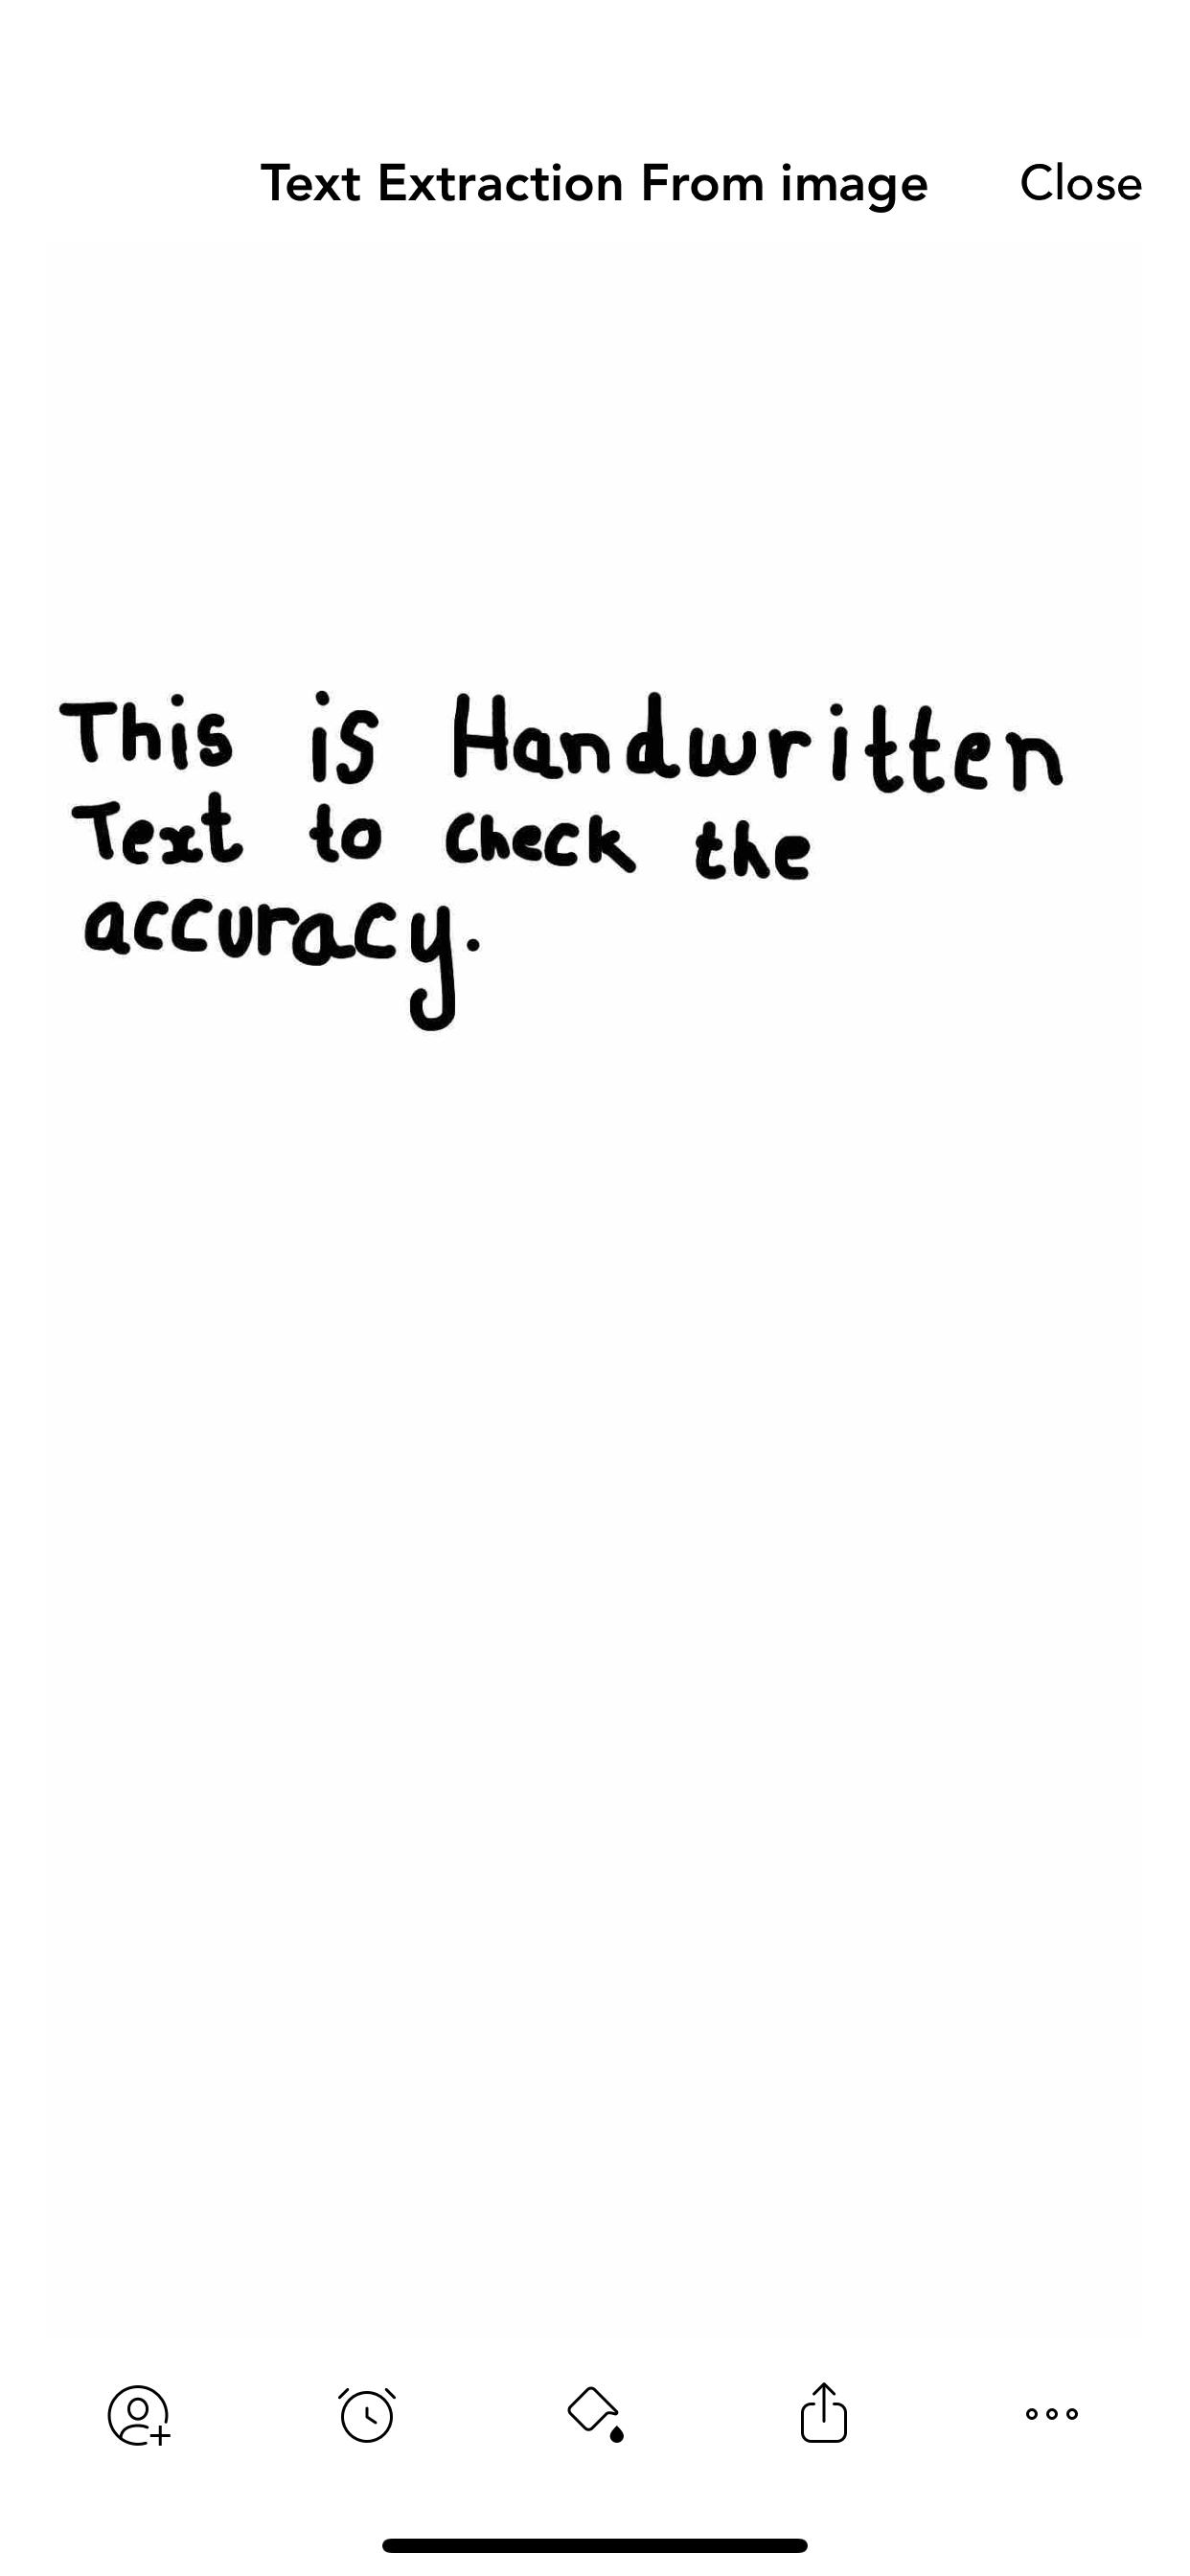 Text Extraction From image Close
This is Handwritten
Text to check the
accuracy.